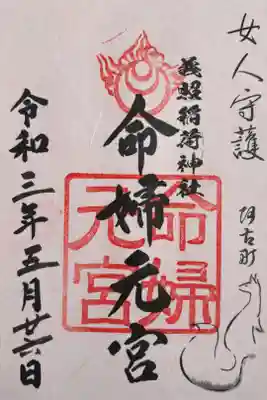 女人守護
阿古町
義照稲荷神社
命婦元宮
命婦
元宮
令和三年五月廿六日